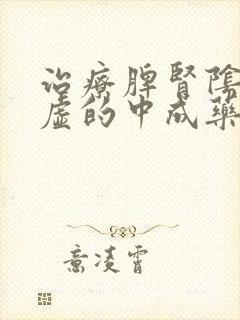 治療脾腎陰
虛的中成藥
意凌霄